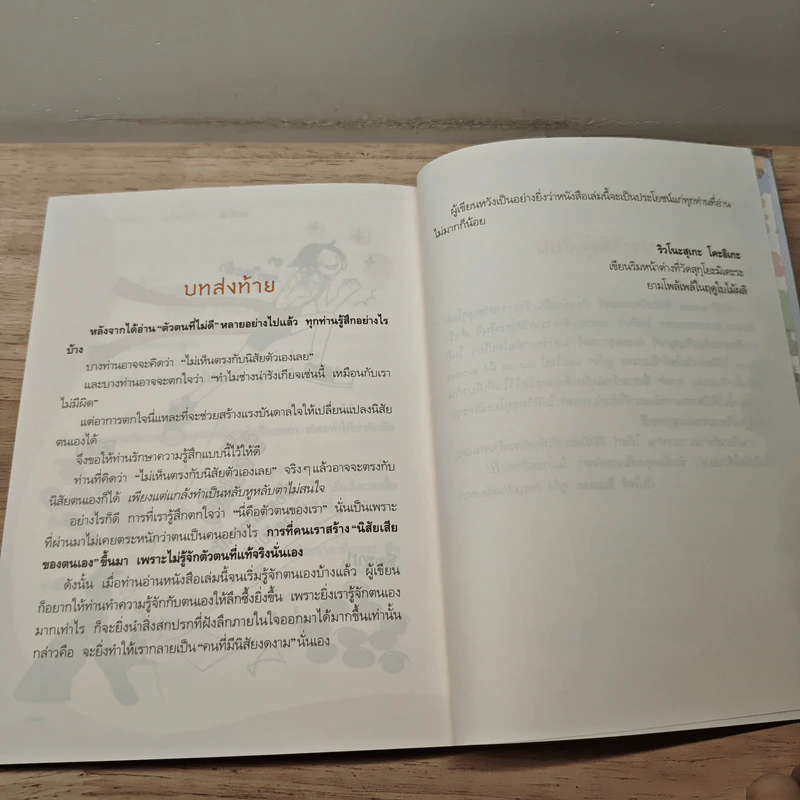 บทส่งท้าย
หลังจากได้อ่าน “ตัวตนที่ไม่ดี” หลายอย่างไปแล้ว ทุกท่านรู้สึกอย่างไร
บ้าง
บางท่านอาจจะคิดว่า “ไม่เห็นตรงกับนิสัยตัวเองเลย”
และบางท่านอาจจะตกใจว่า “ทำไมช่างน่ารังเกียจเช่นนี้ เหมือนกับเรา
ไม่มีผิด”
แต่อาการตกใจนี่แหละที่จะช่วยสร้างแรงบันดาลใจให้เปลี่ยนแปลงนิสัย
ตนเองได้
จึงขอให้ท่านรักษาความรู้สึกแบบนี้ไว้ให้ดี
ท่านที่คิดว่า “ไม่เห็นตรงกับนิสัยตัวเองเลย” จริงๆ แล้วอาจจะตรงกับ
นิสัยตนเองก็ได้ เพียงแต่แกล้งทำเป็นหลับหูหลับตาไม่สนใจ
อย่างไรก็ดี การที่เรารู้สึกตกใจว่า “นี่คือตัวตนของเรา” นั่นเป็นเพราะ
ที่ผ่านมาไม่เคยตระหนักว่าตนเป็นคนอย่างไร การที่คนเราสร้าง “นิสัยเสีย
ของตนเอง” ขึ้นมา เพราะไม่รู้จักตัวตนที่แท้จริงนั่นเอง
ดังนั้น เมื่อท่านอ่านหนังสือเล่มนี้จนเริ่มรู้จักตนเองบ้างแล้ว ผู้เขียน
ก็อยากให้ท่านทำความรู้จักกับตนเองให้ลึกซึ้งยิ่งขึ้น เพราะยิ่งเรารู้จักตนเอง
มากเท่าไร ก็จะยิ่งนำสิ่งสกปรกที่ฝังลึกภายในใจออกมาได้มากขึ้นเท่านั้น
กล่าวคือ จะยิ่งทำให้เรากลายเป็น “คนที่มีนิสัยงดงาม” นั่นเอง
ผู้เขียนหวังเป็นอย่างยิ่งว่าหนังสือเล่มนี้จะเป็นประโยชน์แก่ทุกท่านที่อ่าน
ไม่มากก็น้อย
ริวโนะสุเกะ โคะอิเกะ
เขียนริมหน้าต่างที่วัดสุกุโยะมิเดะระ
ยามโพล้เพล้ในฤดูใบไม้ผลิ